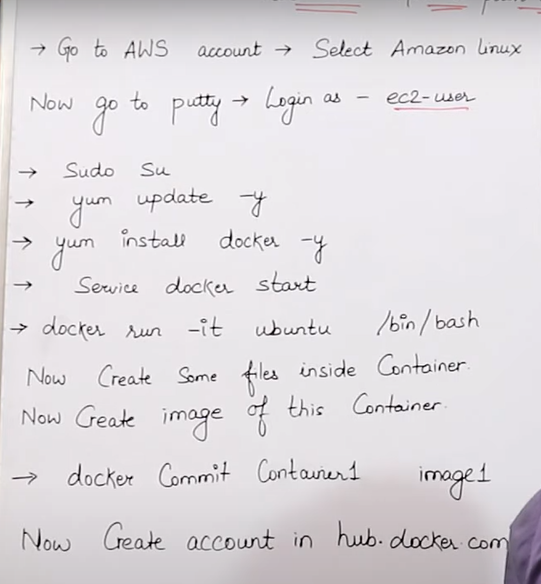 → Go to AWS account → Select Amazon Linux
Now go to putty → Login as - ec2-user
→ Sudo su
→ yum update -y
→ yum install docker -y
→ Service docker start
→ docker run -it ubuntu /bin/bash
Now Create Some files inside Container.
Now Create image of this Container.
→ docker Commit Container1 image1
Now Create account in hub.docker.com